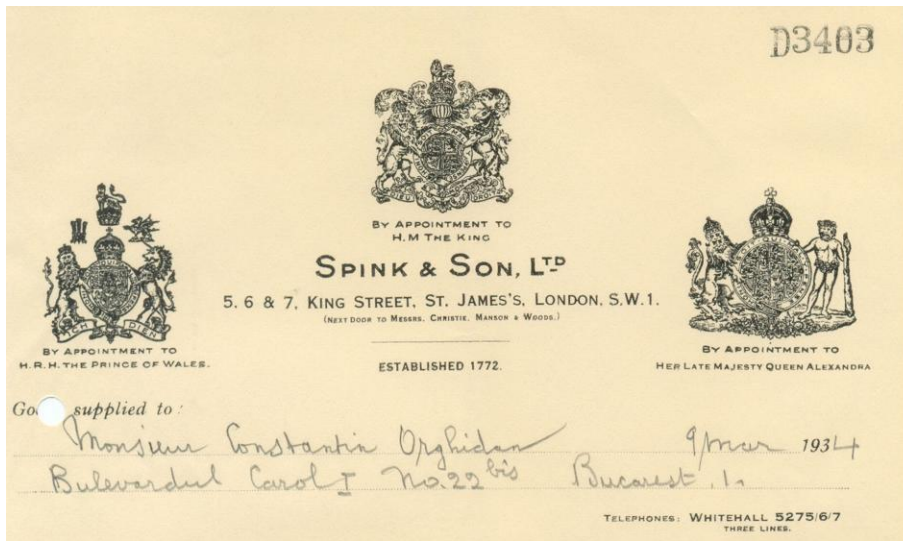 D3403
BY APPOINTMENT TO
H.M THE KING
SPINK & SON, LTD
5, 6 & 7, KING STREET, ST. JAMES'S, LONDON, S.W.1.
(NEXT DOOR TO MESSRS. CHRISTIE, MANSON & WOODS.)
ESTABLISHED 1772.
BY APPOINTMENT TO
H.R.H. THE PRINCE OF WALES.
BY APPOINTMENT TO
HER LATE MAJESTY QUEEN ALEXANDRA
supplied to :
Monsieur Constantin Orghidan 9/mar 1934
Bulevardul Carol I No. 22 bis Bucarest. 1.
TELEPHONES: WHITEHALL 5275/6/7
THREE LINES.